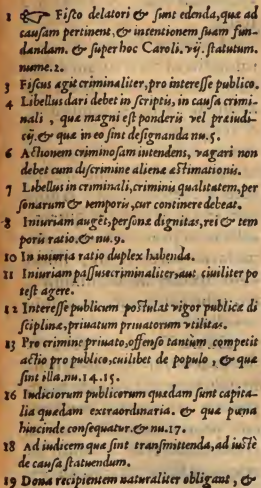 1 ☞ Fisco delatori & sunt edenda, quæ ad
causam pertinent, & intentionem suam fun-
dandam. & super hoc Caroli. vij. statutum.
nume. 2.
3 Fiscus agit criminaliter, pro interesse publico.
4 Libellus dari debet in scriptis, in causa crimi-
nali, quæ magni est ponderis vel præiudi-
cij. & quæ in eo sint designanda nu. 5.
6 Actionem criminosam intendens, vagari non
debet cum discrimine alienæ æstimationis.
7 Libellus in criminali, criminis qualitatem, per
sonarum & temporis, cur continere debeat.
8 Iniuriam augēt, personæ dignitas, rei & tem
poris ratio. & nu. 9.
10 In iniuria ratio duplex habenda.
11 Iniuriam passus criminaliter, aut ciuiliter po
test agere.
12 Interesse publicum postulat vigor publicæ di
sciplinæ, priuatum priuatorum vtilitas.
13 Pro crimine priuato, offenso tantùm competit
actio pro publico, cuilibet de populo, & quæ
sint illa. nu. 14. 15.
16 Iudiciorum publicorum quædam sunt capita-
lia quædam extraordinaria. & quæ pœna
hincinde consequatur. & nu. 17.
18 Ad iudicem quæ sint transmittenda, ad iustè
de causa statuendum.
19 Dona recipientem naturaliter obligant, &